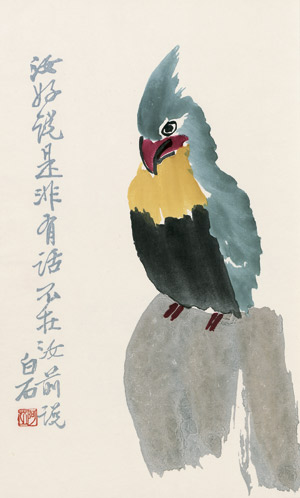 汝好说是非有话不在汝前说
白石